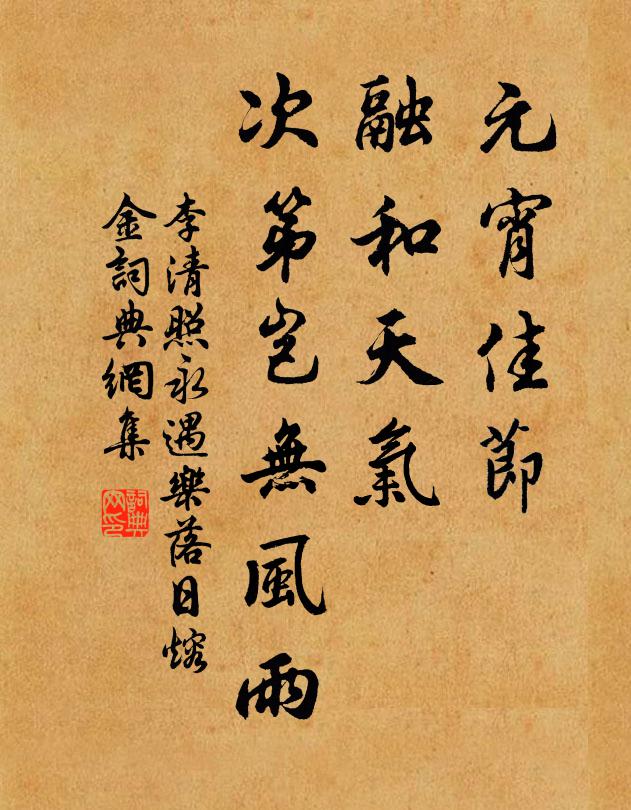 元宵佳節
融和天氣
次第豈無風雨
李清照永遇樂落日熔
金詞典網集
詞典
网印